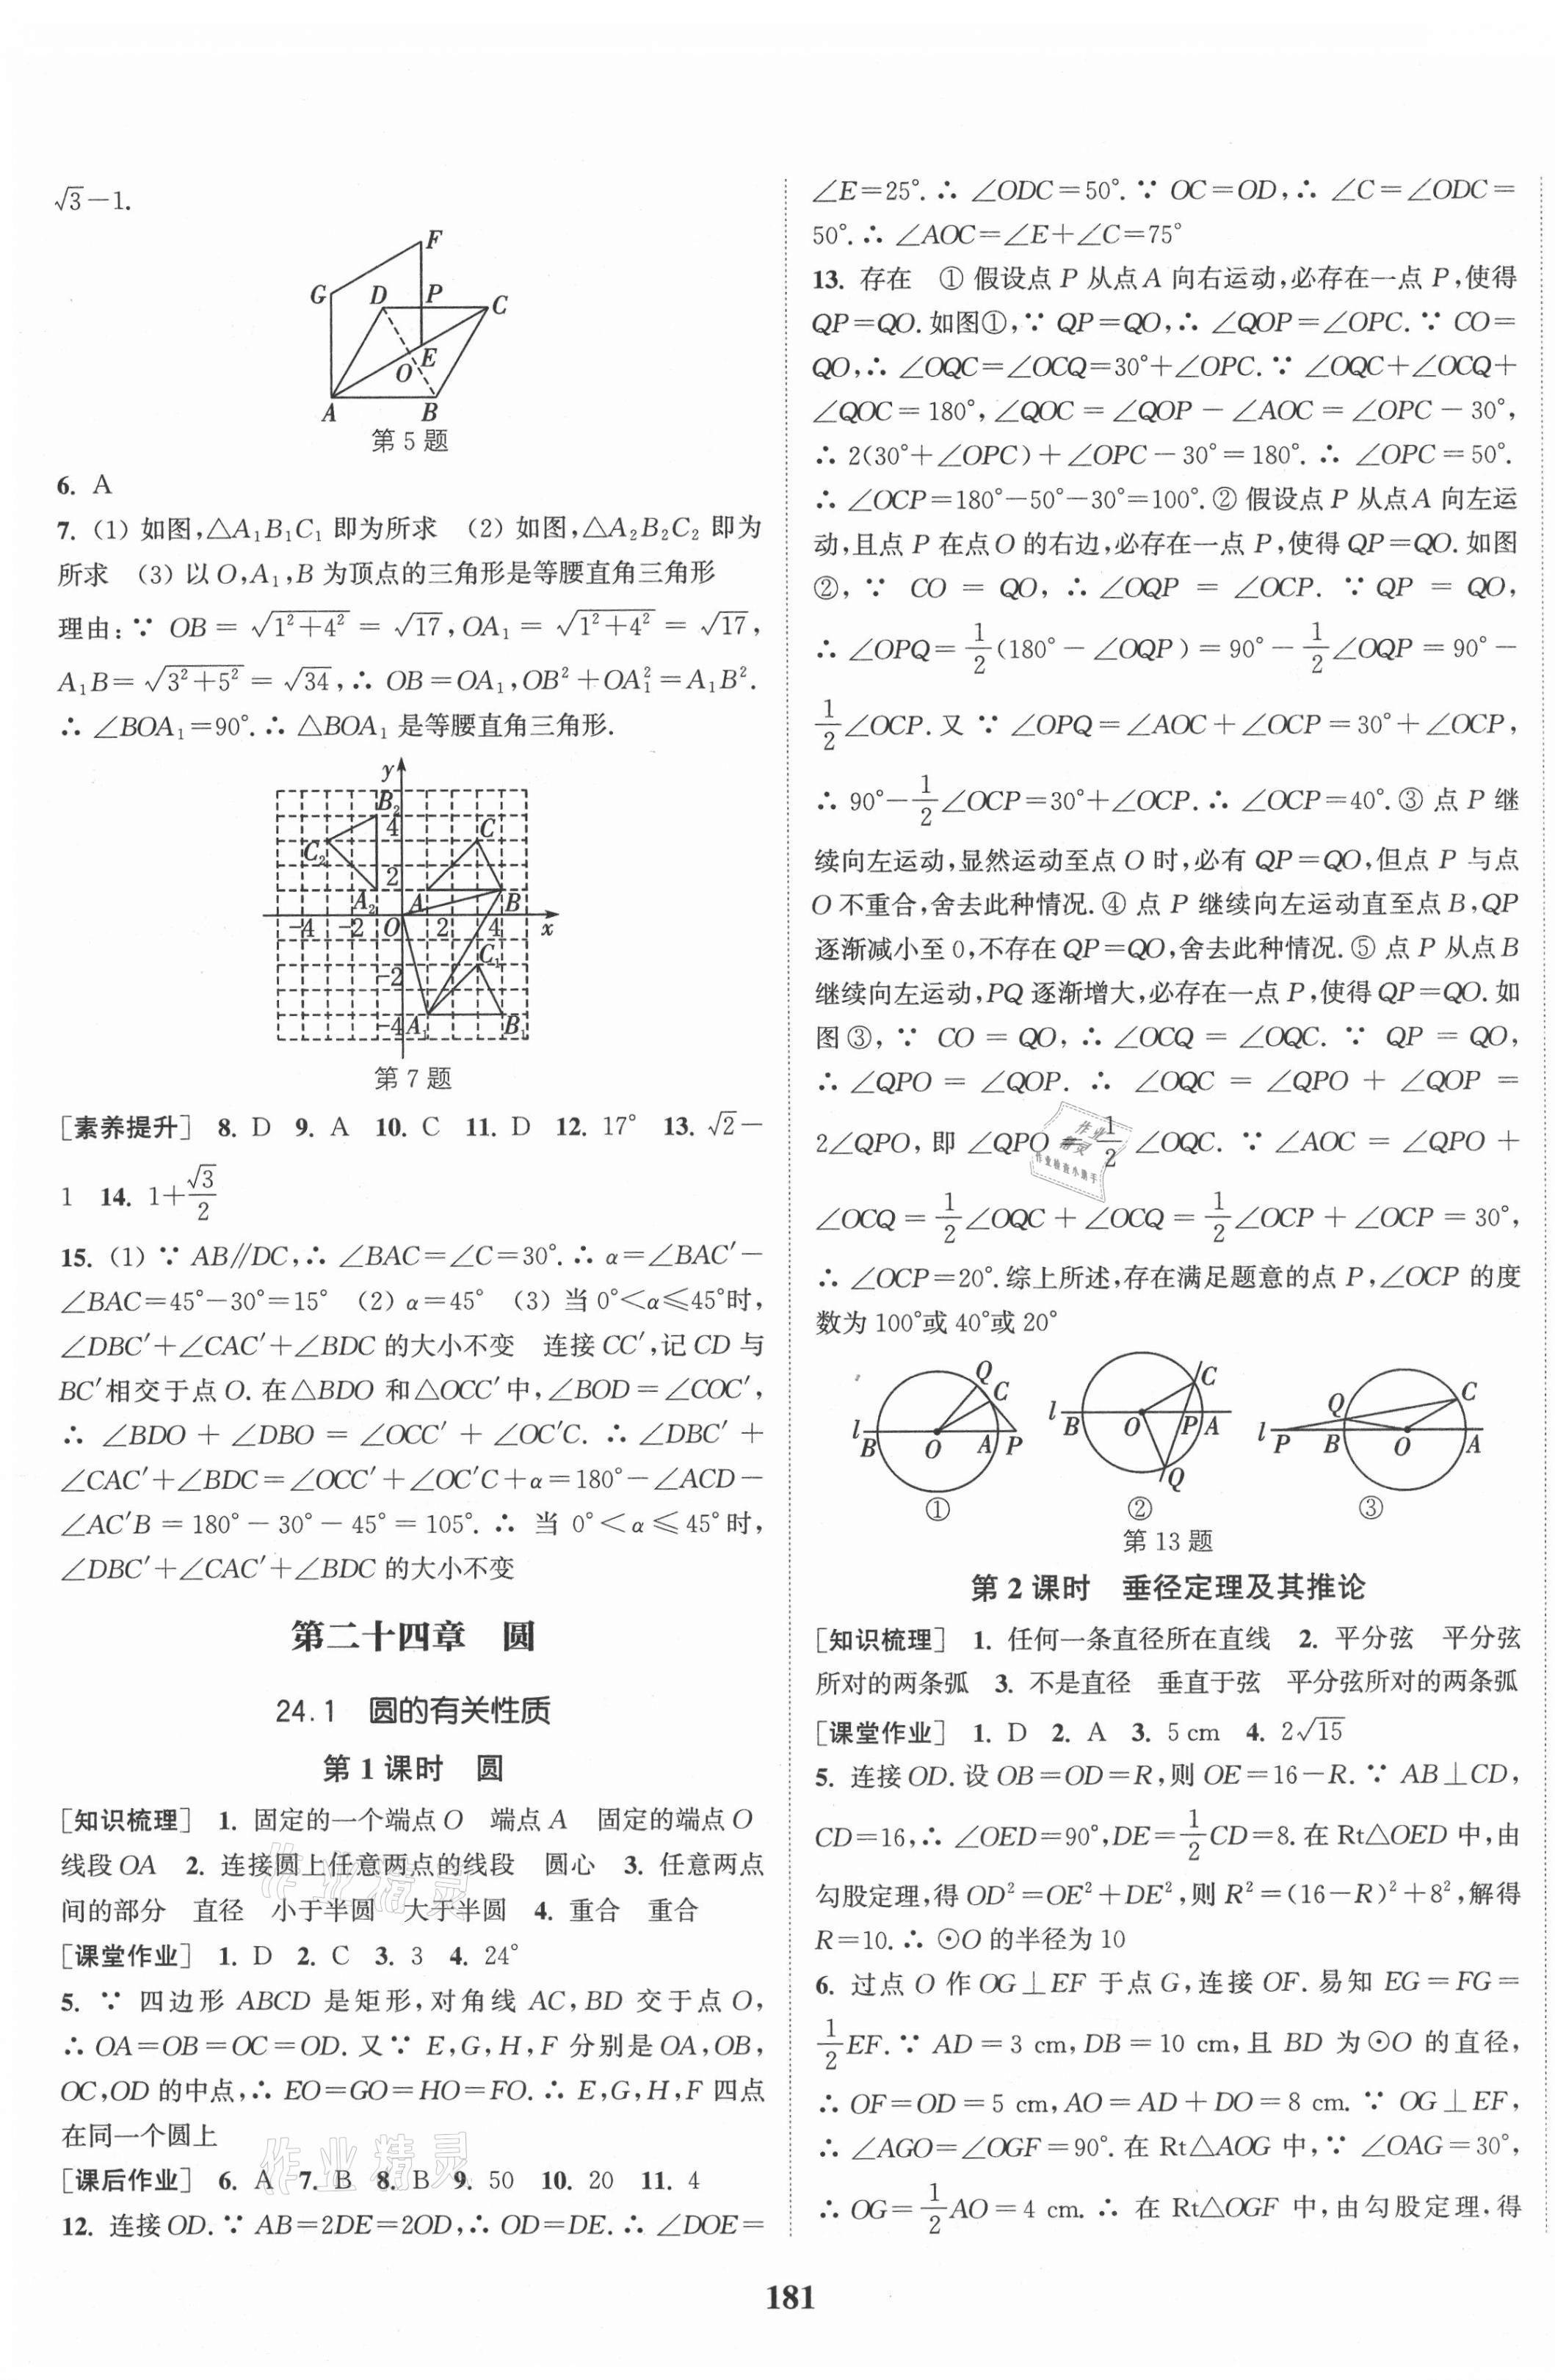 √3－1.
F
G D P C
O E
A B
第 5 题
6. A
7. (1) 如图,△A₁B₁C₁ 即为所求 (2) 如图,△A₂B₂C₂ 即为
所求 (3) 以 O,A₁,B 为顶点的三角形是等腰直角三角形
理由:∵ OB＝√(1²＋4²)＝√17,OA₁＝√(1²＋4²)＝√17,
A₁B＝√(3²＋5²)＝√34,∴ OB＝OA₁,OB²＋OA₁²＝A₁B².
∴ ∠BOA₁＝90°.∴ △BOA₁ 是等腰直角三角形.
y
B₂
4 C
C₂
2
A₂ A B
－4 －2 O 2 4 x
C₁
－2
－4 A₁ B₁
第 7 题
[素养提升] 8. D 9. A 10. C 11. D 12. 17° 13. √2－
1 14. 1＋√3/2
15. (1) ∵ AB∥DC,∴ ∠BAC＝∠C＝30°.∴ α＝∠BAC′－
∠BAC＝45°－30°＝15° (2) α＝45° (3) 当 0°＜α≤45°时,
∠DBC′＋∠CAC′＋∠BDC 的大小不变 连接 CC′,记 CD 与
BC′相交于点 O. 在△BDO 和△OCC′中,∠BOD＝∠COC′,
∴ ∠BDO＋∠DBO＝∠OCC′＋∠OC′C. ∴ ∠DBC′＋
∠CAC′＋∠BDC＝∠OCC′＋∠OC′C＋α＝180°－∠ACD－
∠AC′B＝180°－30°－45°＝105°. ∴ 当 0°＜α≤45°时,
∠DBC′＋∠CAC′＋∠BDC 的大小不变
第二十四章 圆
24.1 圆的有关性质
第 1 课时 圆
[知识梳理] 1. 固定的一个端点 O 端点 A 固定的端点 O
线段 OA 2. 连接圆上任意两点的线段 圆心 3. 任意两点
间的部分 直径 小于半圆 大于半圆 4. 重合 重合
[课堂作业] 1. D 2. C 3. 3 4. 24°
5. ∵ 四边形 ABCD 是矩形,对角线 AC,BD 交于点 O,
∴ OA＝OB＝OC＝OD. 又∵ E,G,H,F 分别是 OA,OB,
OC,OD 的中点,∴ EO＝GO＝HO＝FO.∴ E,G,H,F 四点
在同一个圆上
[课后作业] 6. A 7. B 8. B 9. 50 10. 20 11. 4
12. 连接 OD.∵ AB＝2DE＝2OD,∴ OD＝DE.∴ ∠DOE＝
∠E＝25°.∴ ∠ODC＝50°.∵ OC＝OD,∴ ∠C＝∠ODC＝
50°.∴ ∠AOC＝∠E＋∠C＝75°
13. 存在 ① 假设点 P 从点 A 向右运动,必存在一点 P,使得
QP＝QO. 如图①,∵ QP＝QO,∴ ∠QOP＝∠OPC.∵ CO＝
QO,∴ ∠OQC＝∠OCQ＝30°＋∠OPC.∵ ∠OQC＋∠OCQ＋
∠QOC＝180°,∠QOC＝∠QOP－∠AOC＝∠OPC－30°,
∴ 2(30°＋∠OPC)＋∠OPC－30°＝180°. ∴ ∠OPC＝50°.
∴ ∠OCP＝180°－50°－30°＝100°.② 假设点 P 从点 A 向左运
动,且点 P 在点 O 的右边,必存在一点 P,使得 QP＝QO. 如图
②,∵ CO＝QO,∴ ∠OQP＝∠OCP. ∵ QP＝QO,
∴ ∠OPQ＝1/2(180°－∠OQP)＝90°－1/2∠OQP＝90°－
1/2∠OCP. 又 ∵ ∠OPQ＝∠AOC＋∠OCP＝30°＋∠OCP,
∴ 90°－1/2∠OCP＝30°＋∠OCP.∴ ∠OCP＝40°.③ 点 P 继
续向左运动,显然运动至点 O 时,必有 QP＝QO,但点 P 与点
O 不重合,舍去此种情况.④ 点 P 继续向左运动直至点 B,QP
逐渐减小至 0,不存在 QP＝QO,舍去此种情况.⑤ 点 P 从点 B
继续向左运动,PQ 逐渐增大,必存在一点 P,使得 QP＝QO. 如
图③,∵ CO＝QO,∴ ∠OCQ＝∠OQC. ∵ QP＝QO,
∴ ∠QPO＝∠QOP. ∴ ∠OQC＝∠QPO＋∠QOP＝
2∠QPO,即 ∠QPO＝1/2∠OQC. ∵ ∠AOC＝∠QPO＋
∠OCQ＝1/2∠OQC＋∠OCQ＝1/2∠OCP＋∠OCP＝30°,
∴ ∠OCP＝20°.综上所述,存在满足题意的点 P,∠OCP 的度
数为 100°或 40°或 20°
Q C l B O A P
①
C l B O P A Q
②
Q C l P B O A
③
第 13 题
第 2 课时 垂径定理及其推论
[知识梳理] 1. 任何一条直径所在直线 2. 平分弦 平分弦
所对的两条弧 3. 不是直径 垂直于弦 平分弦所对的两条弧
[课堂作业] 1. D 2. A 3. 5 cm 4. 2√15
5. 连接 OD. 设 OB＝OD＝R,则 OE＝16－R.∵ AB⊥CD,
CD＝16,∴ ∠OED＝90°,DE＝1/2CD＝8. 在 Rt△OED 中,由
勾股定理,得 OD²＝OE²＋DE²,则 R²＝(16－R)²＋8²,解得
R＝10.∴ ⊙O 的半径为 10
6. 过点 O 作 OG⊥EF 于点 G,连接 OF. 易知 EG＝FG＝
1/2EF.∵ AD＝3 cm,DB＝10 cm,且 BD 为⊙O 的直径,
∴ OF＝OD＝5 cm,AO＝AD＋DO＝8 cm. ∵ OG⊥EF,
∴ ∠AGO＝∠OGF＝90°. 在 Rt△AOG 中,∵ ∠OAG＝30°,
∴ OG＝1/2AO＝4 cm. ∴ 在 Rt△OGF 中,由勾股定理,得
181
作业精灵
作业精灵
作业精灵
作业检查小助手